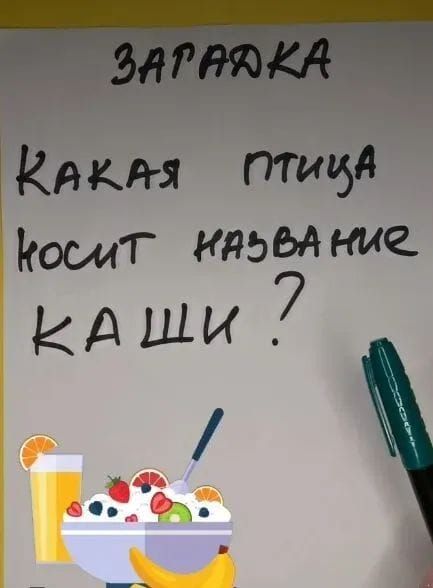 ЗАГАДКА
КАКАЯ ПТИЦА
НОСИТ НАЗВАНИЕ
КАШИ?